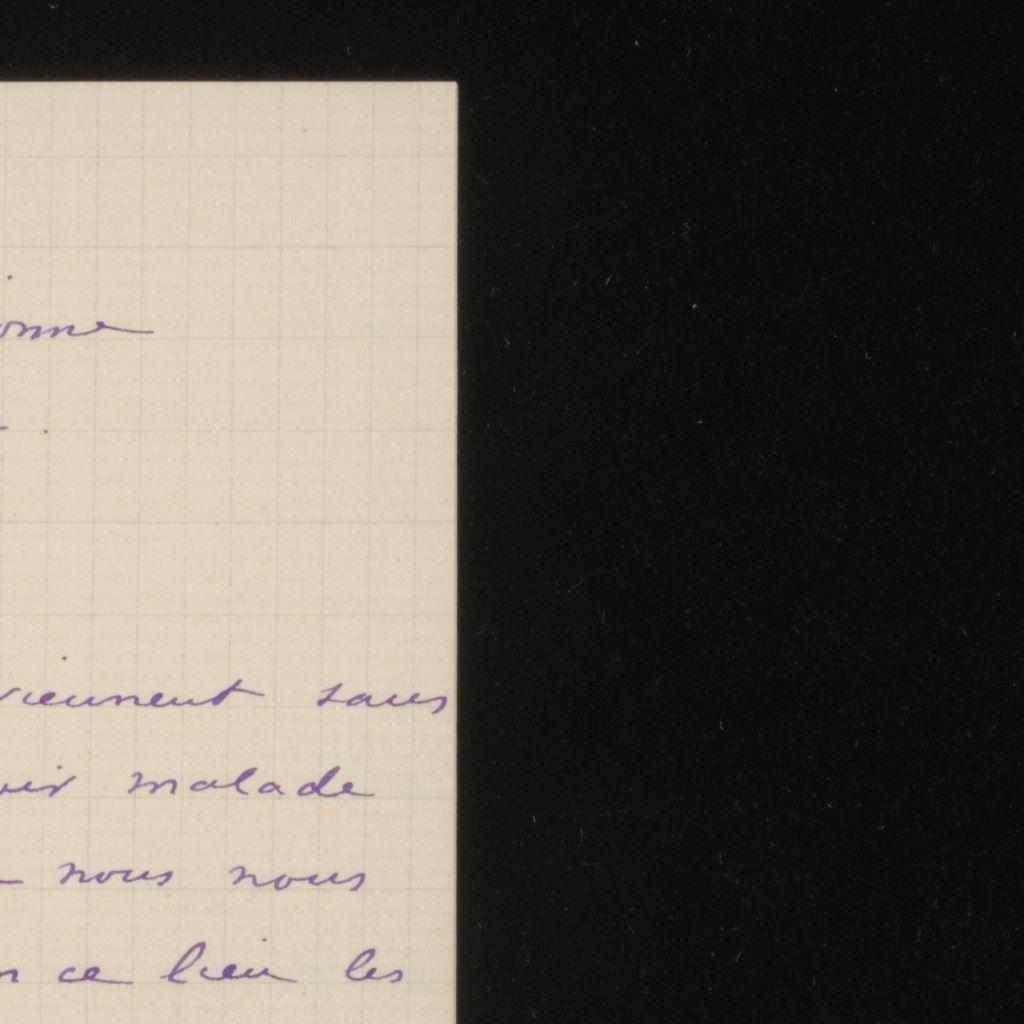 onne
.
viennent sans
oir malade
nous nous
n ce lieu les